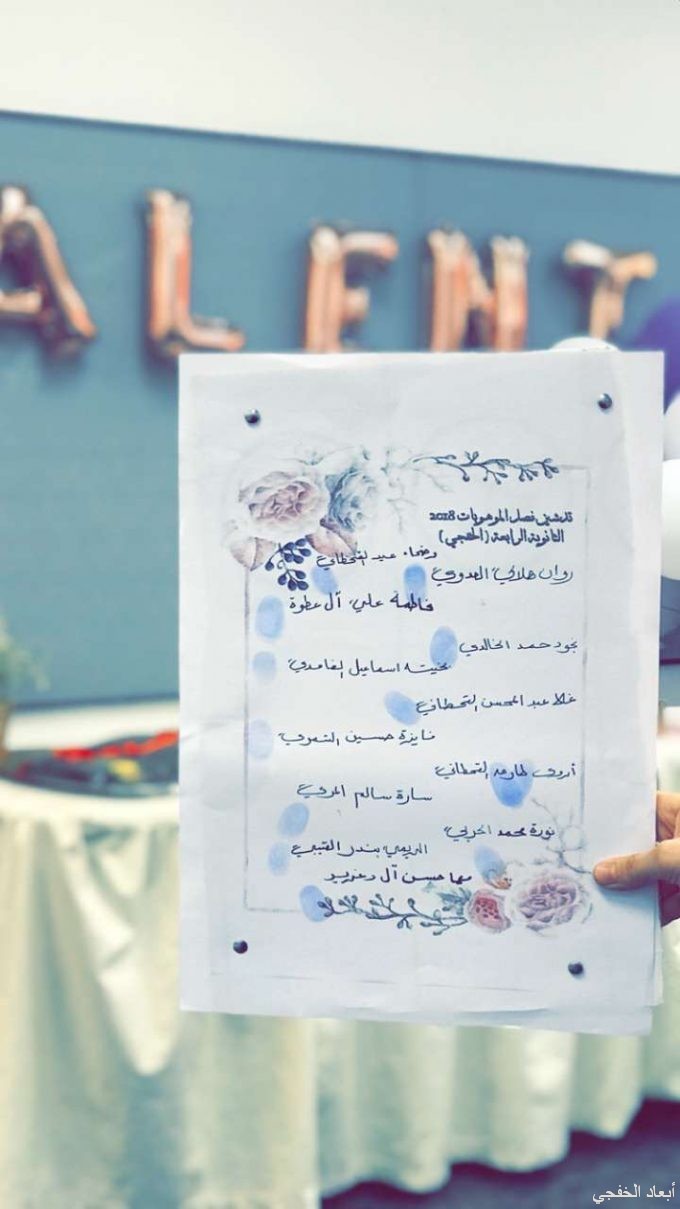 ALENT
تدشين فصل الموهوبات 2018
الثانوية الرابعة (الخفجي)
وضحاء عيد القحطاني
روان هلالي العدوي
فاطمة علي آل عطوة
نجود حمد الخالدي
بخيته اسماعيل الغامدي
غلا عبد المحسن القحطاني
فايزة حسين الشمري
أروى طارق القحطاني
سارة سالم المري
نورة محمد الحربي
الريمي بندر العتيبي
مها حسن آل
أبعاد الخفجي